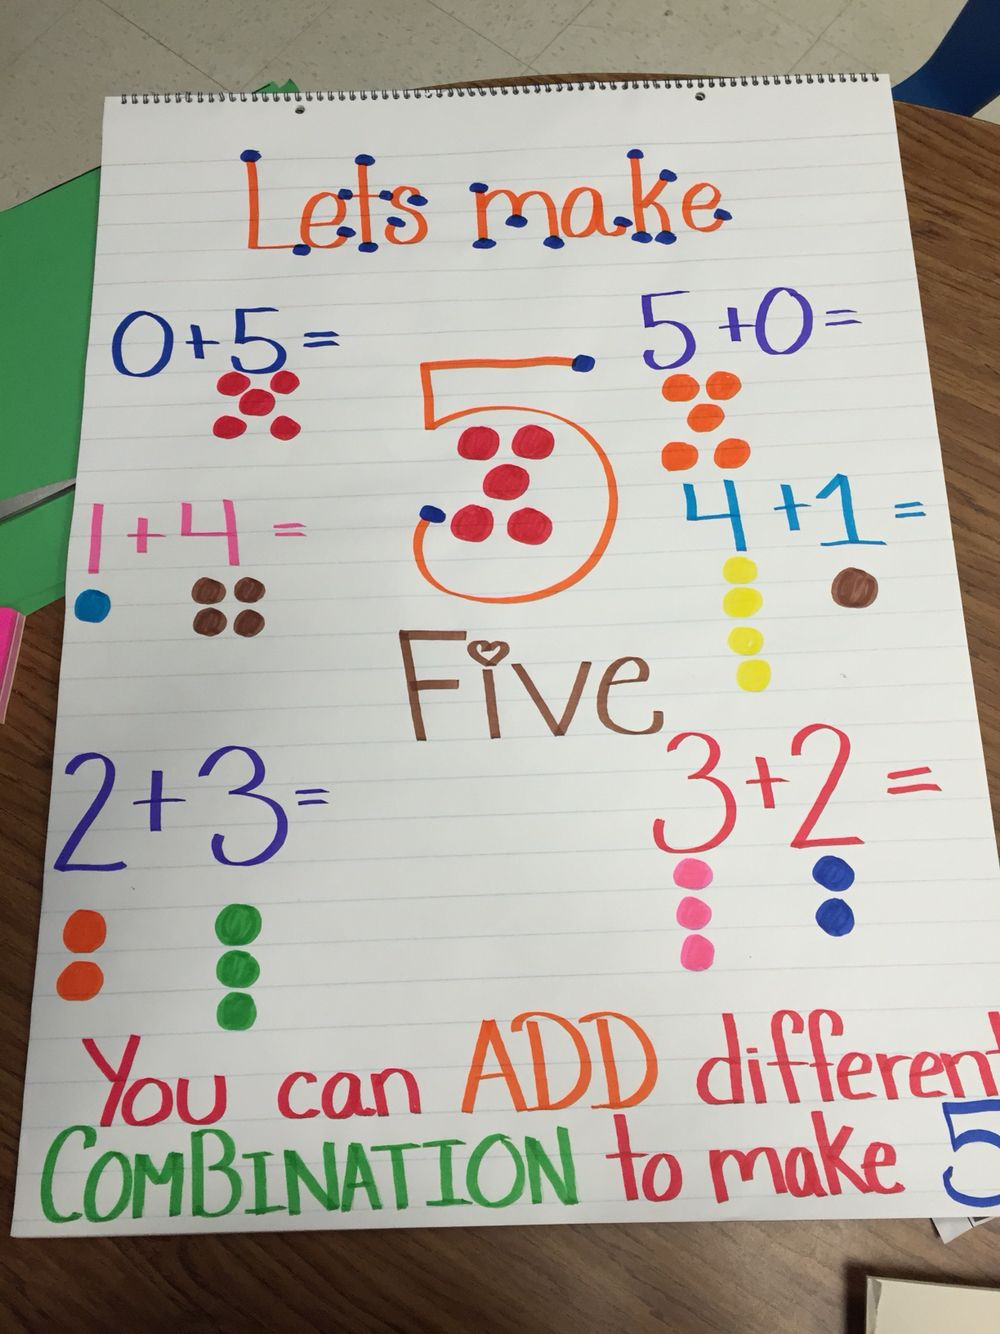 Lets make
0+5=
5+0=
5
1+4=
4+1=
Five
2+3=
3+2=
You can ADD different
COMBINATION to make 5